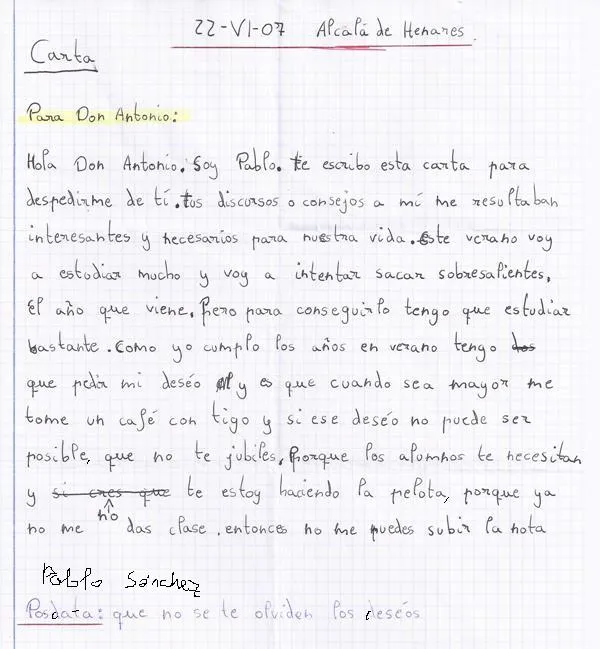 22-VI-07 Alcalá de Henares.
Carta
Para Don Antonio:
Hola Don Antonio. Soy Pablo. te escribo esta carta para
despedirme de tí. tus discursos o consejos a mí me resultaban
interesantes y necesarios para nuestra vida. Este verano voy
a estudiar mucho y voy a intentar sacar sobresalientes,
el año que viene. Pero para conseguirlo tengo que estudiar
bastante. Como yo cumplo los años en verano tengo dos
que pedir mi deséo y es que cuando sea mayor me
tome un café con tigo y si ese deséo no puede ser
posible, que no te jubiles, porque los alumnos te necesitan
y si crees que te estoy haciendo la pelota, porque ya
no
no me das clase, entonces no me puedes subir la nota
Pablo Sánchez
Posdata: que no se te olviden los deséos